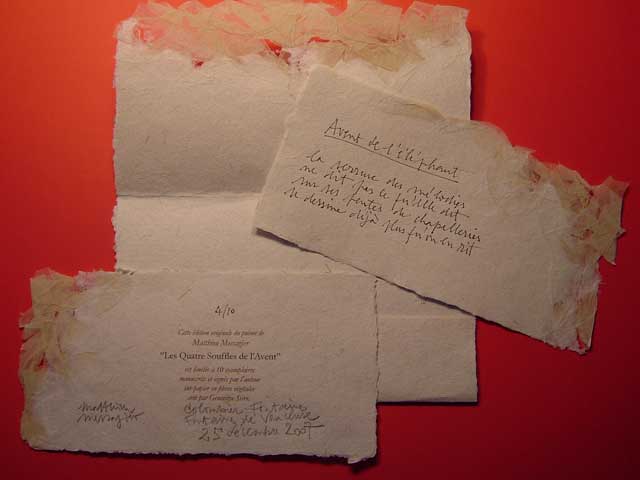 Avent de l'éléphant
la verrine des mélodies
ne dit pas ce qu'elle dit
sur ses pentes de chapelleries
se dessine déjà plus qu'on en rit
4/10
Cette édition originale du poème de
Matthieu Messagier
"Les Quatre Souffles de l'Avent"
est limitée à 10 exemplaires
manuscrits et signés par l'auteur
sur papier en fibres végétales
créé par Geneviève
Matthieu
Messagier
Colombier Fontaine
Fontaine de Vaucluse
25 décembre 2007